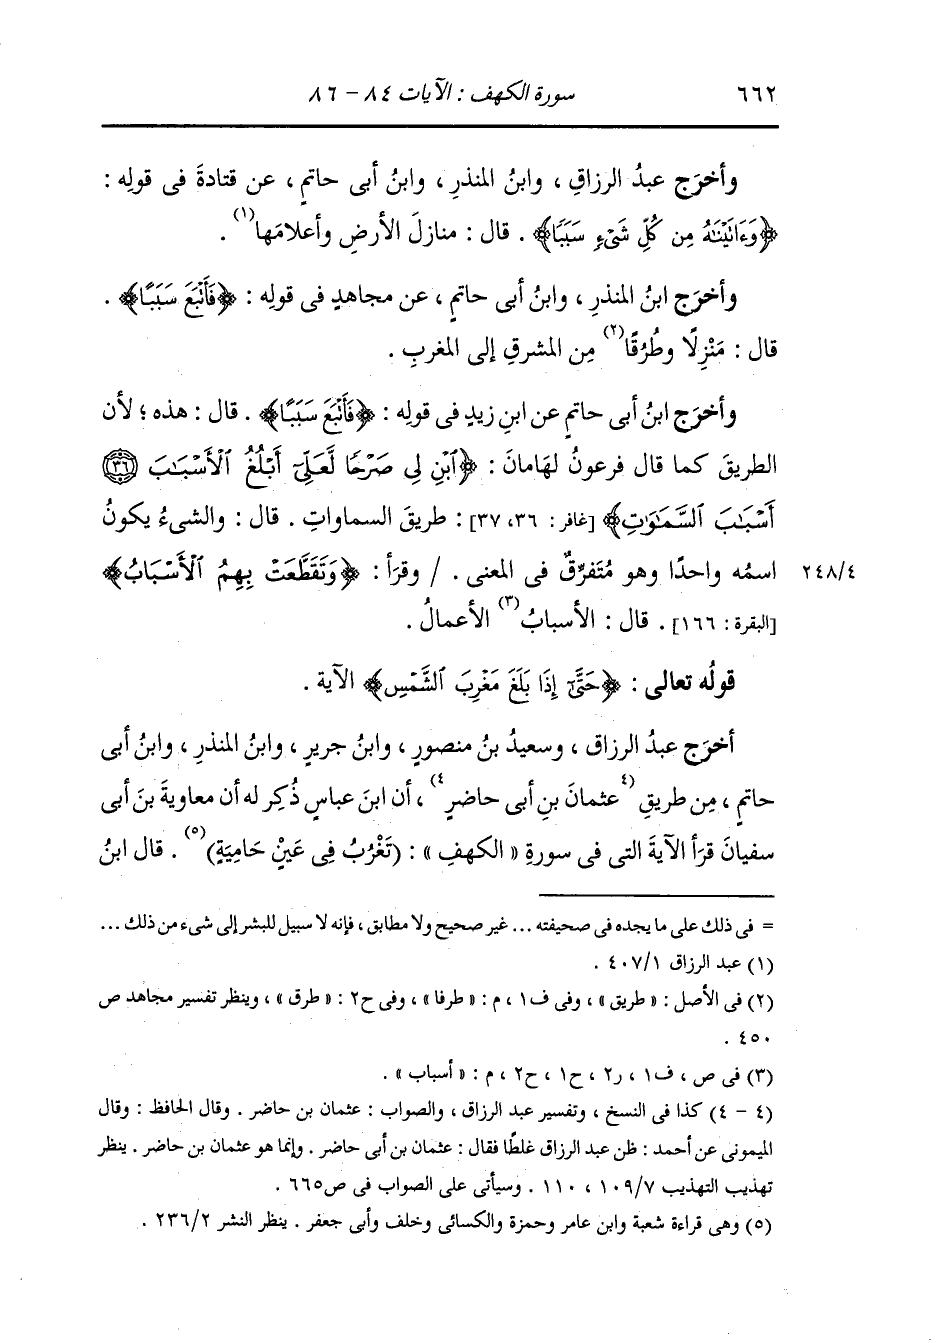 ٦٦٢ سورة الكهف : الآيات ٨٤ - ٨٦
وأخرَج عبدُ الرزاقِ ، وابنُ المنذرِ ، وابنُ أبى حاتمٍ ، عن قتادةَ فى قولِه :
﴿وَءَاتَيْنَٰهُ مِن كُلِّ شَىْءٍ سَبَبًا﴾ . قال : منازلَ الأرضِ وأعلامَها(١) .
وأخرَج ابنُ المنذرِ ، وابنُ أبى حاتمٍ ، عن مجاهدٍ فى قولِه : ﴿فَأَتْبَعَ سَبَبًا﴾ .
قال : مَنْزِلًا وطُرُقًا(٢) مِن المشرقِ إلى المغربِ .
وأخرَج ابنُ أبى حاتمٍ عن ابنِ زيدٍ فى قولِه : ﴿فَأَتْبَعَ سَبَبًا﴾ . قال : هذه ؛ لأن
الطريقَ كما قال فرعونُ لهَامانَ : ﴿ٱبْنِ لِى صَرْحًا لَّعَلِّىٓ أَبْلُغُ ٱلْأَسْبَٰبَ ٣٦
أَسْبَٰبَ ٱلسَّمَٰوَٰتِ﴾ [غافر : ٣٦، ٣٧] : طريقَ السماواتِ . قال : والشىءُ يكونُ
اسمُه واحدًا وهو مُتَفرِّقٌ فى المعنى . / وقرَأ : ﴿وَتَقَطَّعَتْ بِهِمُ ٱلْأَسْبَابُ﴾ ٢٤٨/٤
[البقرة : ١٦٦] . قال : الأسبابُ(٣) الأعمالُ .
قولُه تعالى : ﴿حَتَّىٰٓ إِذَا بَلَغَ مَغْرِبَ ٱلشَّمْسِ﴾ الآية .
أخرَج عبدُ الرزاق ، وسعيدُ بنُ منصورٍ ، وابنُ جريرٍ ، وابنُ المنذرِ ، وابنُ أبى
حاتمٍ ، مِن طريقِ (٤عثمانَ بنِ أبى حاضرٍ٤) ، أن ابنَ عباسٍ ذُكِر له أن معاويةَ بنَ أبى
سفيانَ قرَأ الآيةَ التى فى سورةِ « الكهفِ » : (تَغْرُبُ فِى عَيْنٍ حَامِيَةٍ)(٥) . قال ابنُ
= فى ذلك على ما يجده فى صحيفته ... غير صحيح ولا مطابق ، فإنه لا سبيل للبشر إلى شىء من ذلك ...
(١) عبد الرزاق ٤٠٧/١ .
(٢) فى الأصل : « طريق » ، وفى ف١ ، م : « طرفا » ، وفى ح٢ : « طرق » ، وينظر تفسير مجاهد ص
٤٥٠ .
(٣) فى ص ، ف١ ، ر٢ ، ح١ ، ح٢ ، م : « أسباب » .
(٤ - ٤) كذا فى النسخ ، وتفسير عبد الرزاق ، والصواب : عثمان بن حاضر . وقال الحافظ : وقال
الميمونى عن أحمد : ظن عبد الرزاق غلطًا فقال : عثمان بن أبى حاضر . وإنما هو عثمان بن حاضر . ينظر
تهذيب التهذيب ١٠٩/٧ ، ١١٠ . وسيأتى على الصواب فى ص٦٦٥ .
(٥) وهى قراءة شعبة وابن عامر وحمزة والكسائى وخلف وأبى جعفر . ينظر النشر ٢٣٦/٢ .